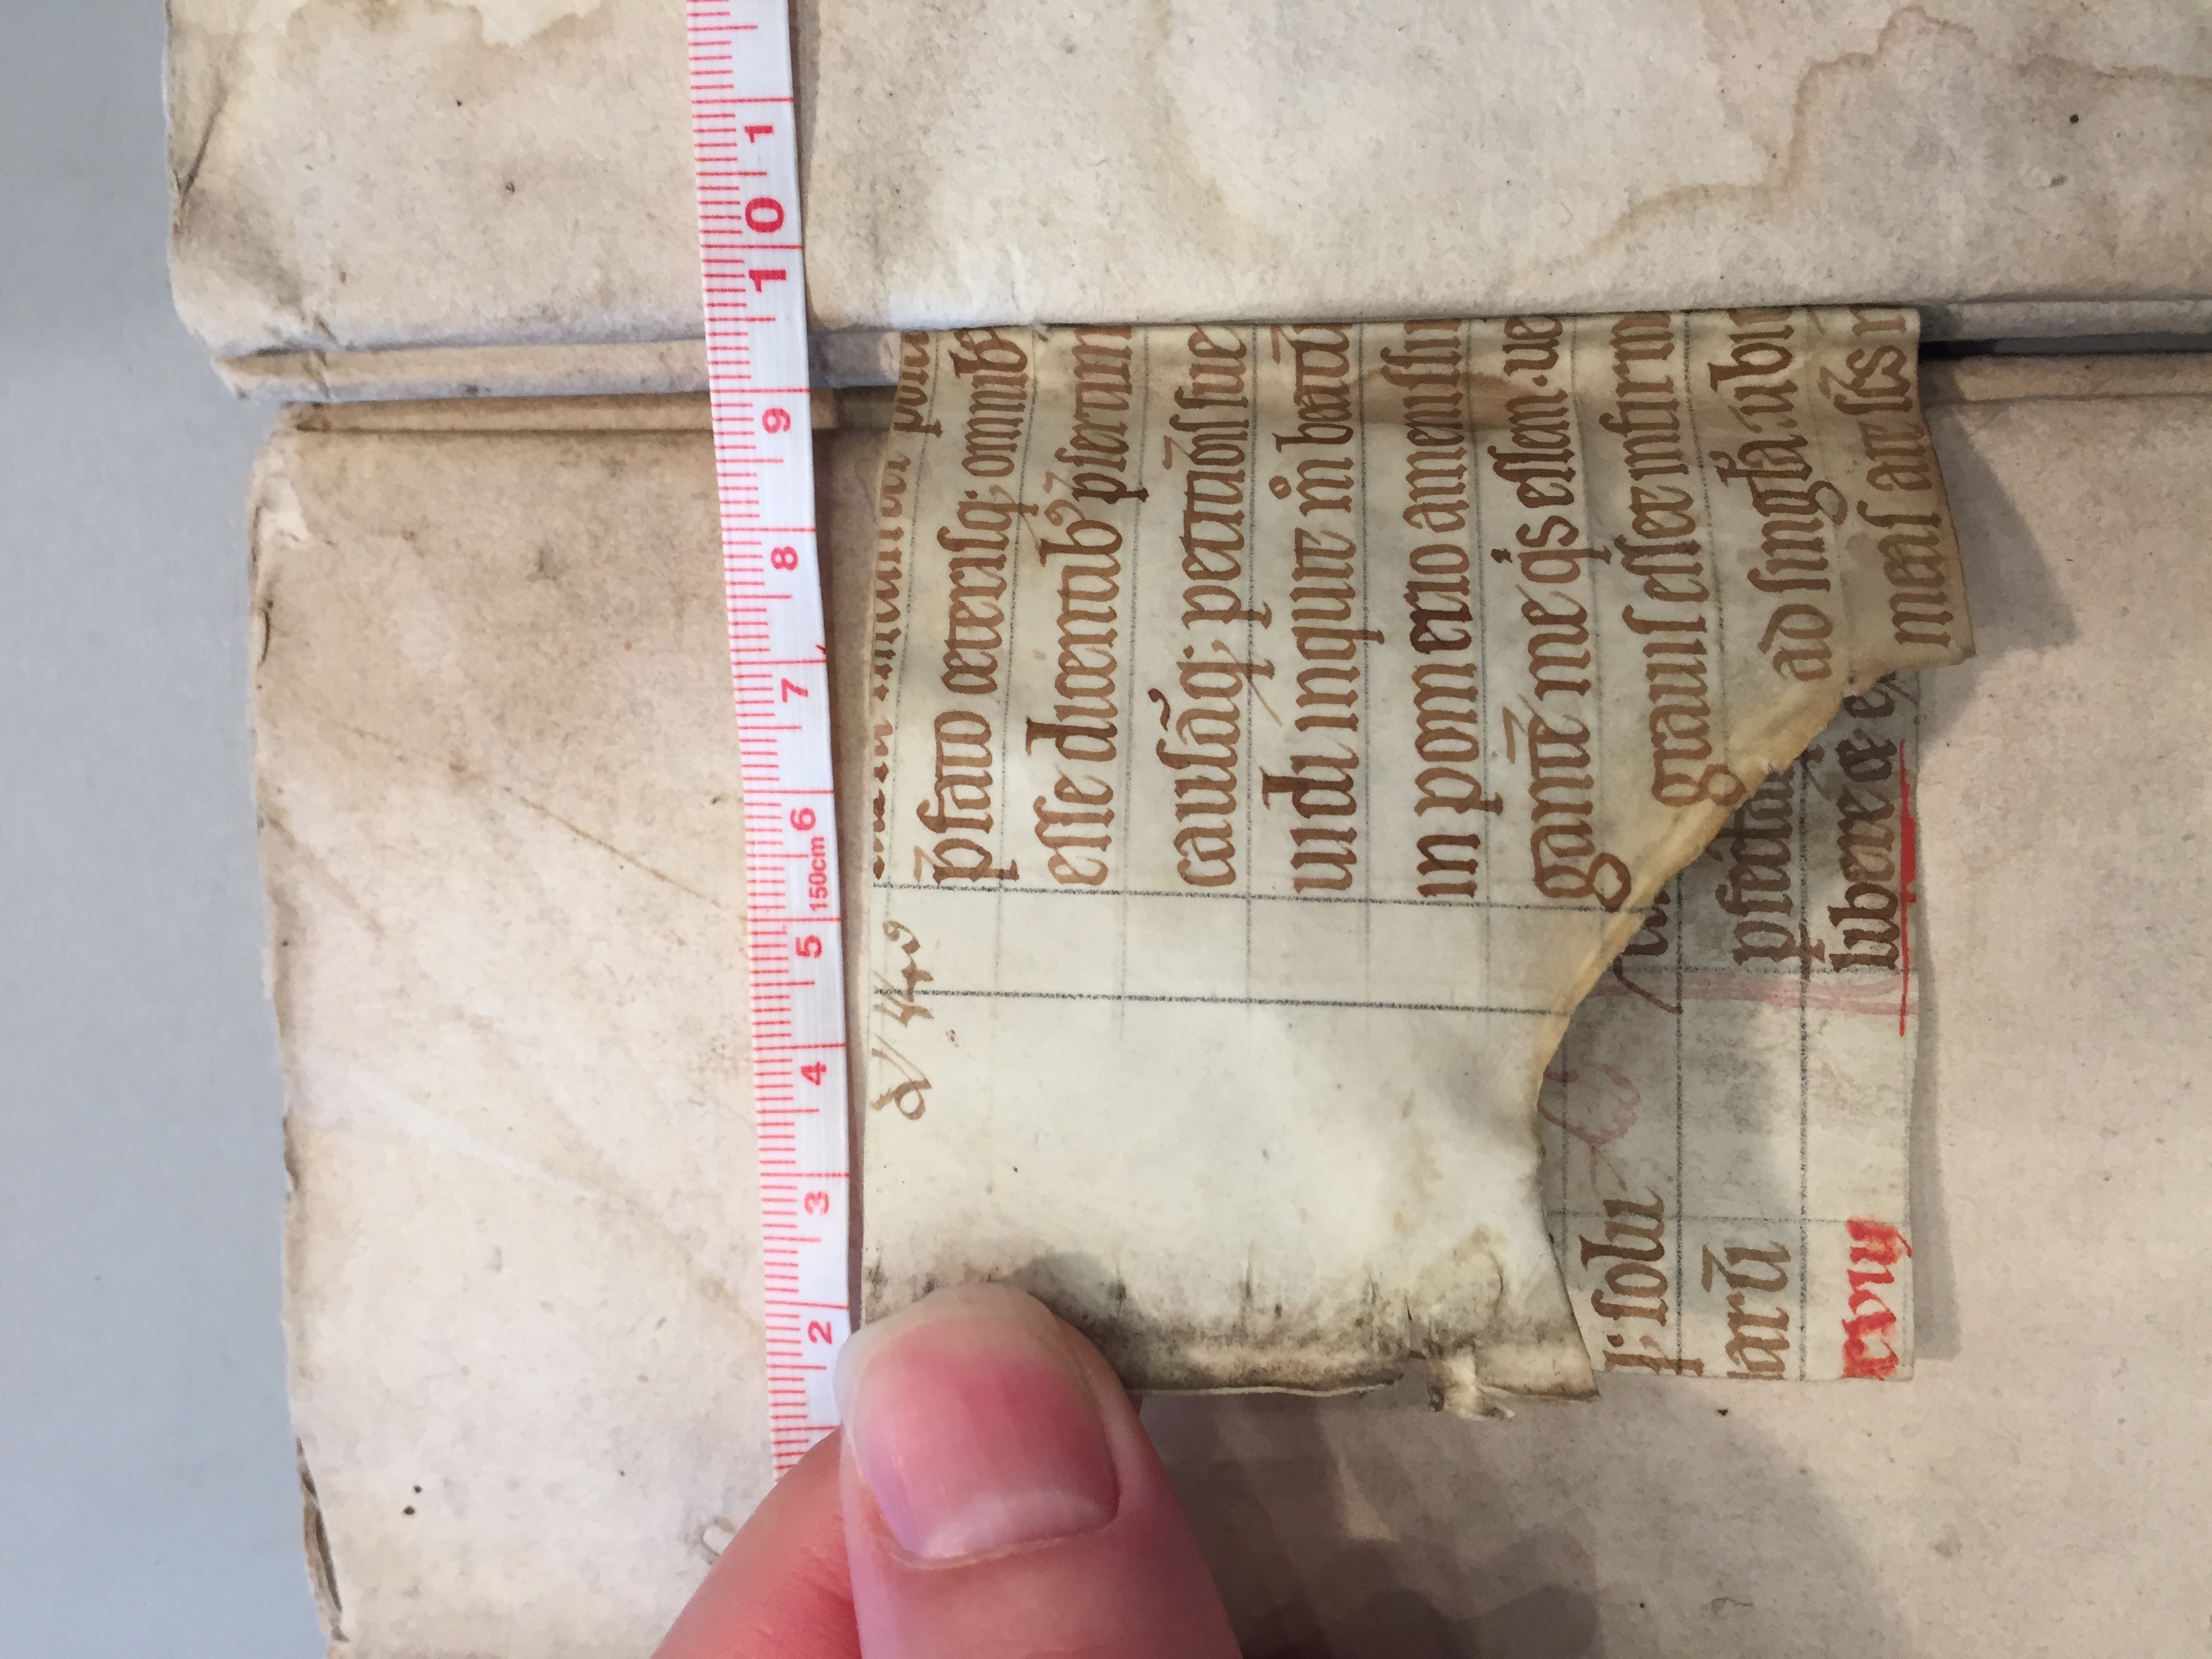 2 3 4 5 150cm 6 7 8 9 10 1
p̄fato ceterisq; omnibꝰ
esse dicentibꝰ p̄sertim
causāq; petitiōis sue
uidi inquit m̊ beatū
in pomerio amenissi
gantē me qⁱs essem · ue
grauis esset infirm
ad singl̓a · ubi
meas at scs̄
solu
arū
ꝑfecta
libere
cviij